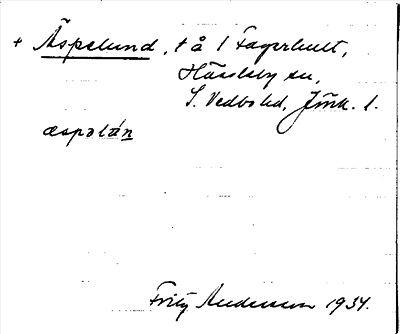 + Äspelund, t å 1 Fagerhult,
Hässleby sn,
S. Vedbo hd, Jönk. l.
æspəlán
Fritz Andersson 1934.